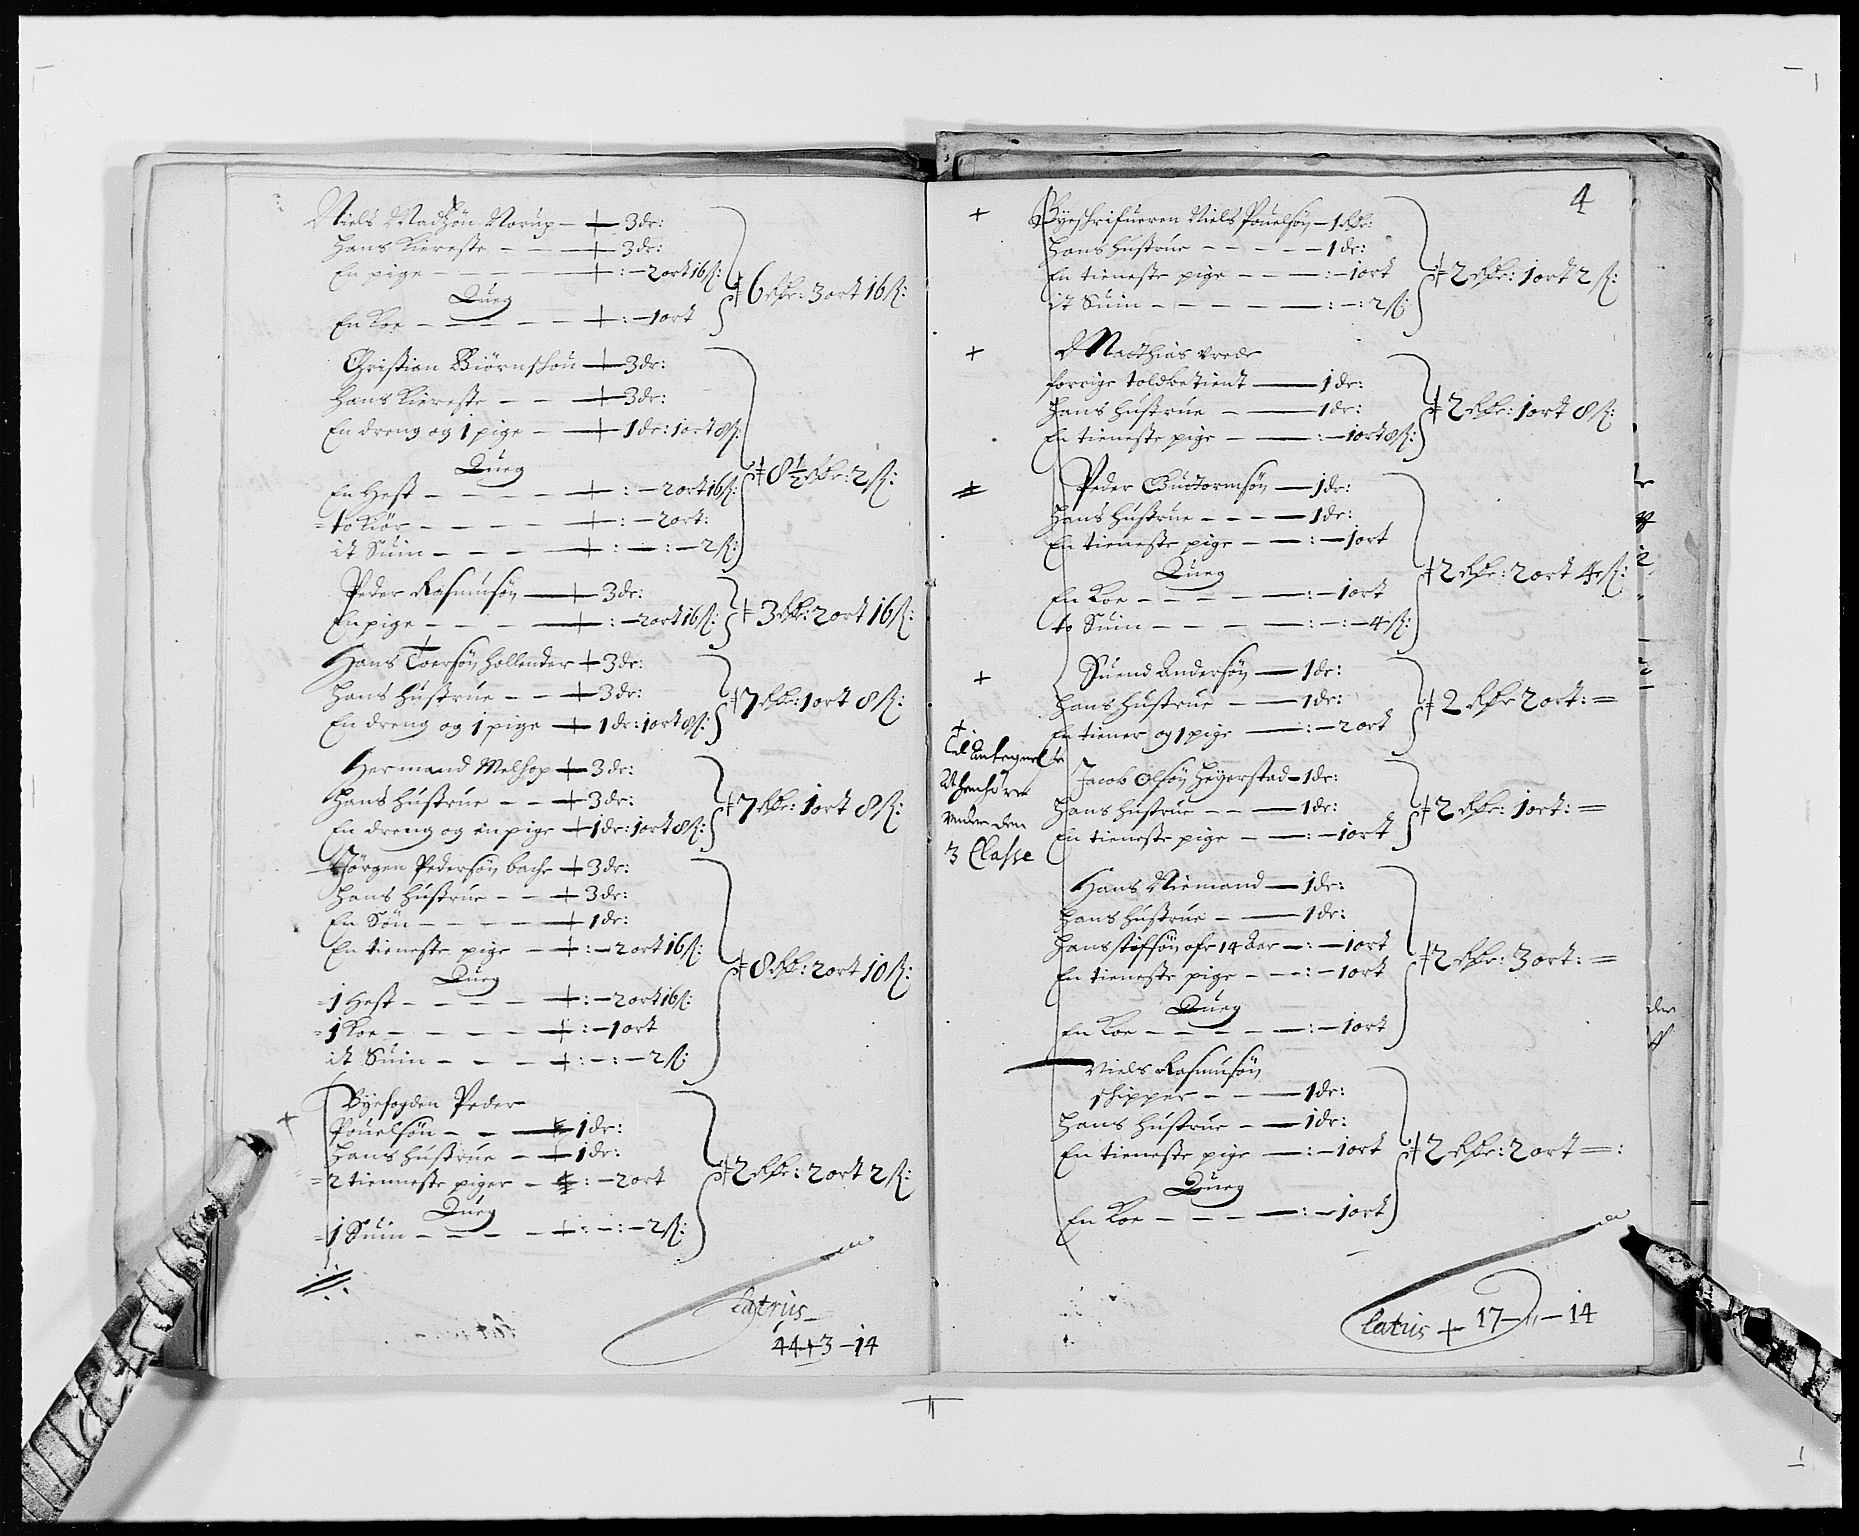 Niels Madsøn Norup - + 3 dr:
Hans Kiereste - - + 3 dr:
En pige - - - - + : - 2 ort 16 ß:
6 Rdr: 3 ort 16 ß:
Queg
En Koe - - - - - + : - 1 ort
Christian Biørnshøn + 3 dr:
Hans Kiereste - - + 3 dr:
En dreng og 1 pige - + 1 dr: 1 ort 8 ß:
Queg
8½ Rdr: 2 ß:
En Hest - - - - + : - 2 ort 16 ß:
to Kiør - - - - - + : - 2 ort:
it Suin - - - - + : - : - 2 ß:
Peder Rasmusøn + 3 dr:
3 Rdr: 2 ort 16 ß:
En pige - - - - + : - 2 ort 16 ß:
Hans Toersøn hollender + 3 dr:
Hans hustrue - - + 3 dr:
7 Rdr: 1 ort 8 ß:
En dreng og 1 pige + 1 dr: 1 ort 8 ß:
Hermand Melhop + 3 dr:
Hans hustrue - - + 3 dr:
7 Rdr: 1 ort 8 ß:
En dreng og en pige + 1 dr: 1 ort 8 ß:
Jørgen Pedersøn bache + 3 dr:
Hans hustrue - - + 3 dr:
En Søn - - - - + 1 dr:
En tieneste pige - + : - 2 ort 16 ß:
8 Rdr: 2 ort 10 ß:
Queg
1 Hest - - - - + : - 2 ort 16 ß:
1 Koe - - - - - + : - 1 ort
it Suin - - - - + : - : - 2 ß:
+ Byefogden Peder
Pouelsøn - - + 1 dr:
Hans hustrue - + 1 dr:
2 Rdr: 2 ort 2 ß:
2 tienneste piger - + : - 2 ort
Queg
1 Suin - - - - - + : - : - 2 ß:
Latus
44 + 3 - 14
4
+ Byeschrifueren Niels Pouelsøn - 1 Rdr:
Hans hustrue - - - - - 1 dr:
En tieneste pige - - - : - 1 ort
2 Rdr: 1 ort 2 ß:
it Suin - - - - - : - : 2 ß:
+ Matthias Vrede
forrige toldbetient - 1 dr:
Hans hustrue - - 1 dr:
2 Rdr: 1 ort 8 ß:
En tieneste pige - - : - 1 ort 8 ß:
Peder Guttormsøn - 1 dr:
Hans hustrue - - - - 1 dr:
En tieneste pige - - : - 1 ort
Queg
2 Rdr: 2 ort 4 ß:
En Koe - - - - - : - 1 ort
to Suin - - - - - : - : - 4 ß:
+ Suend Andersøn - 1 dr:
Hans hustrue - - 1 dr:
2 Rdr 2 ort: =
En tiener og 1 pige - : - 2 ort
+
Vnder den
3 Classe
Jacob Olsøn Hegerstad - 1 dr:
Hans hustrue - - - 1 dr:
2 Rdr: 1 ort: =
En tieneste pige - - : - 1 ort
Hans Niemand - 1 dr:
Hans hustrue - - 1 dr:
Hans stifsøn ofr 14 Aar - : - 1 ort
2 Rdr: 3 ort: =
En tieneste pige - - - : - 1 ort
Queg
En Koe - - - - - : - 1 ort
Niels Rasmusøn
schipper - - - 1 dr:
Hans hustrue - - 1 dr:
En tieneste pige - : - 1 ort
2 Rdr: 2 ort = :
Queg
En Koe - - - - : - 1 ort
Latus + 17 - " - 14